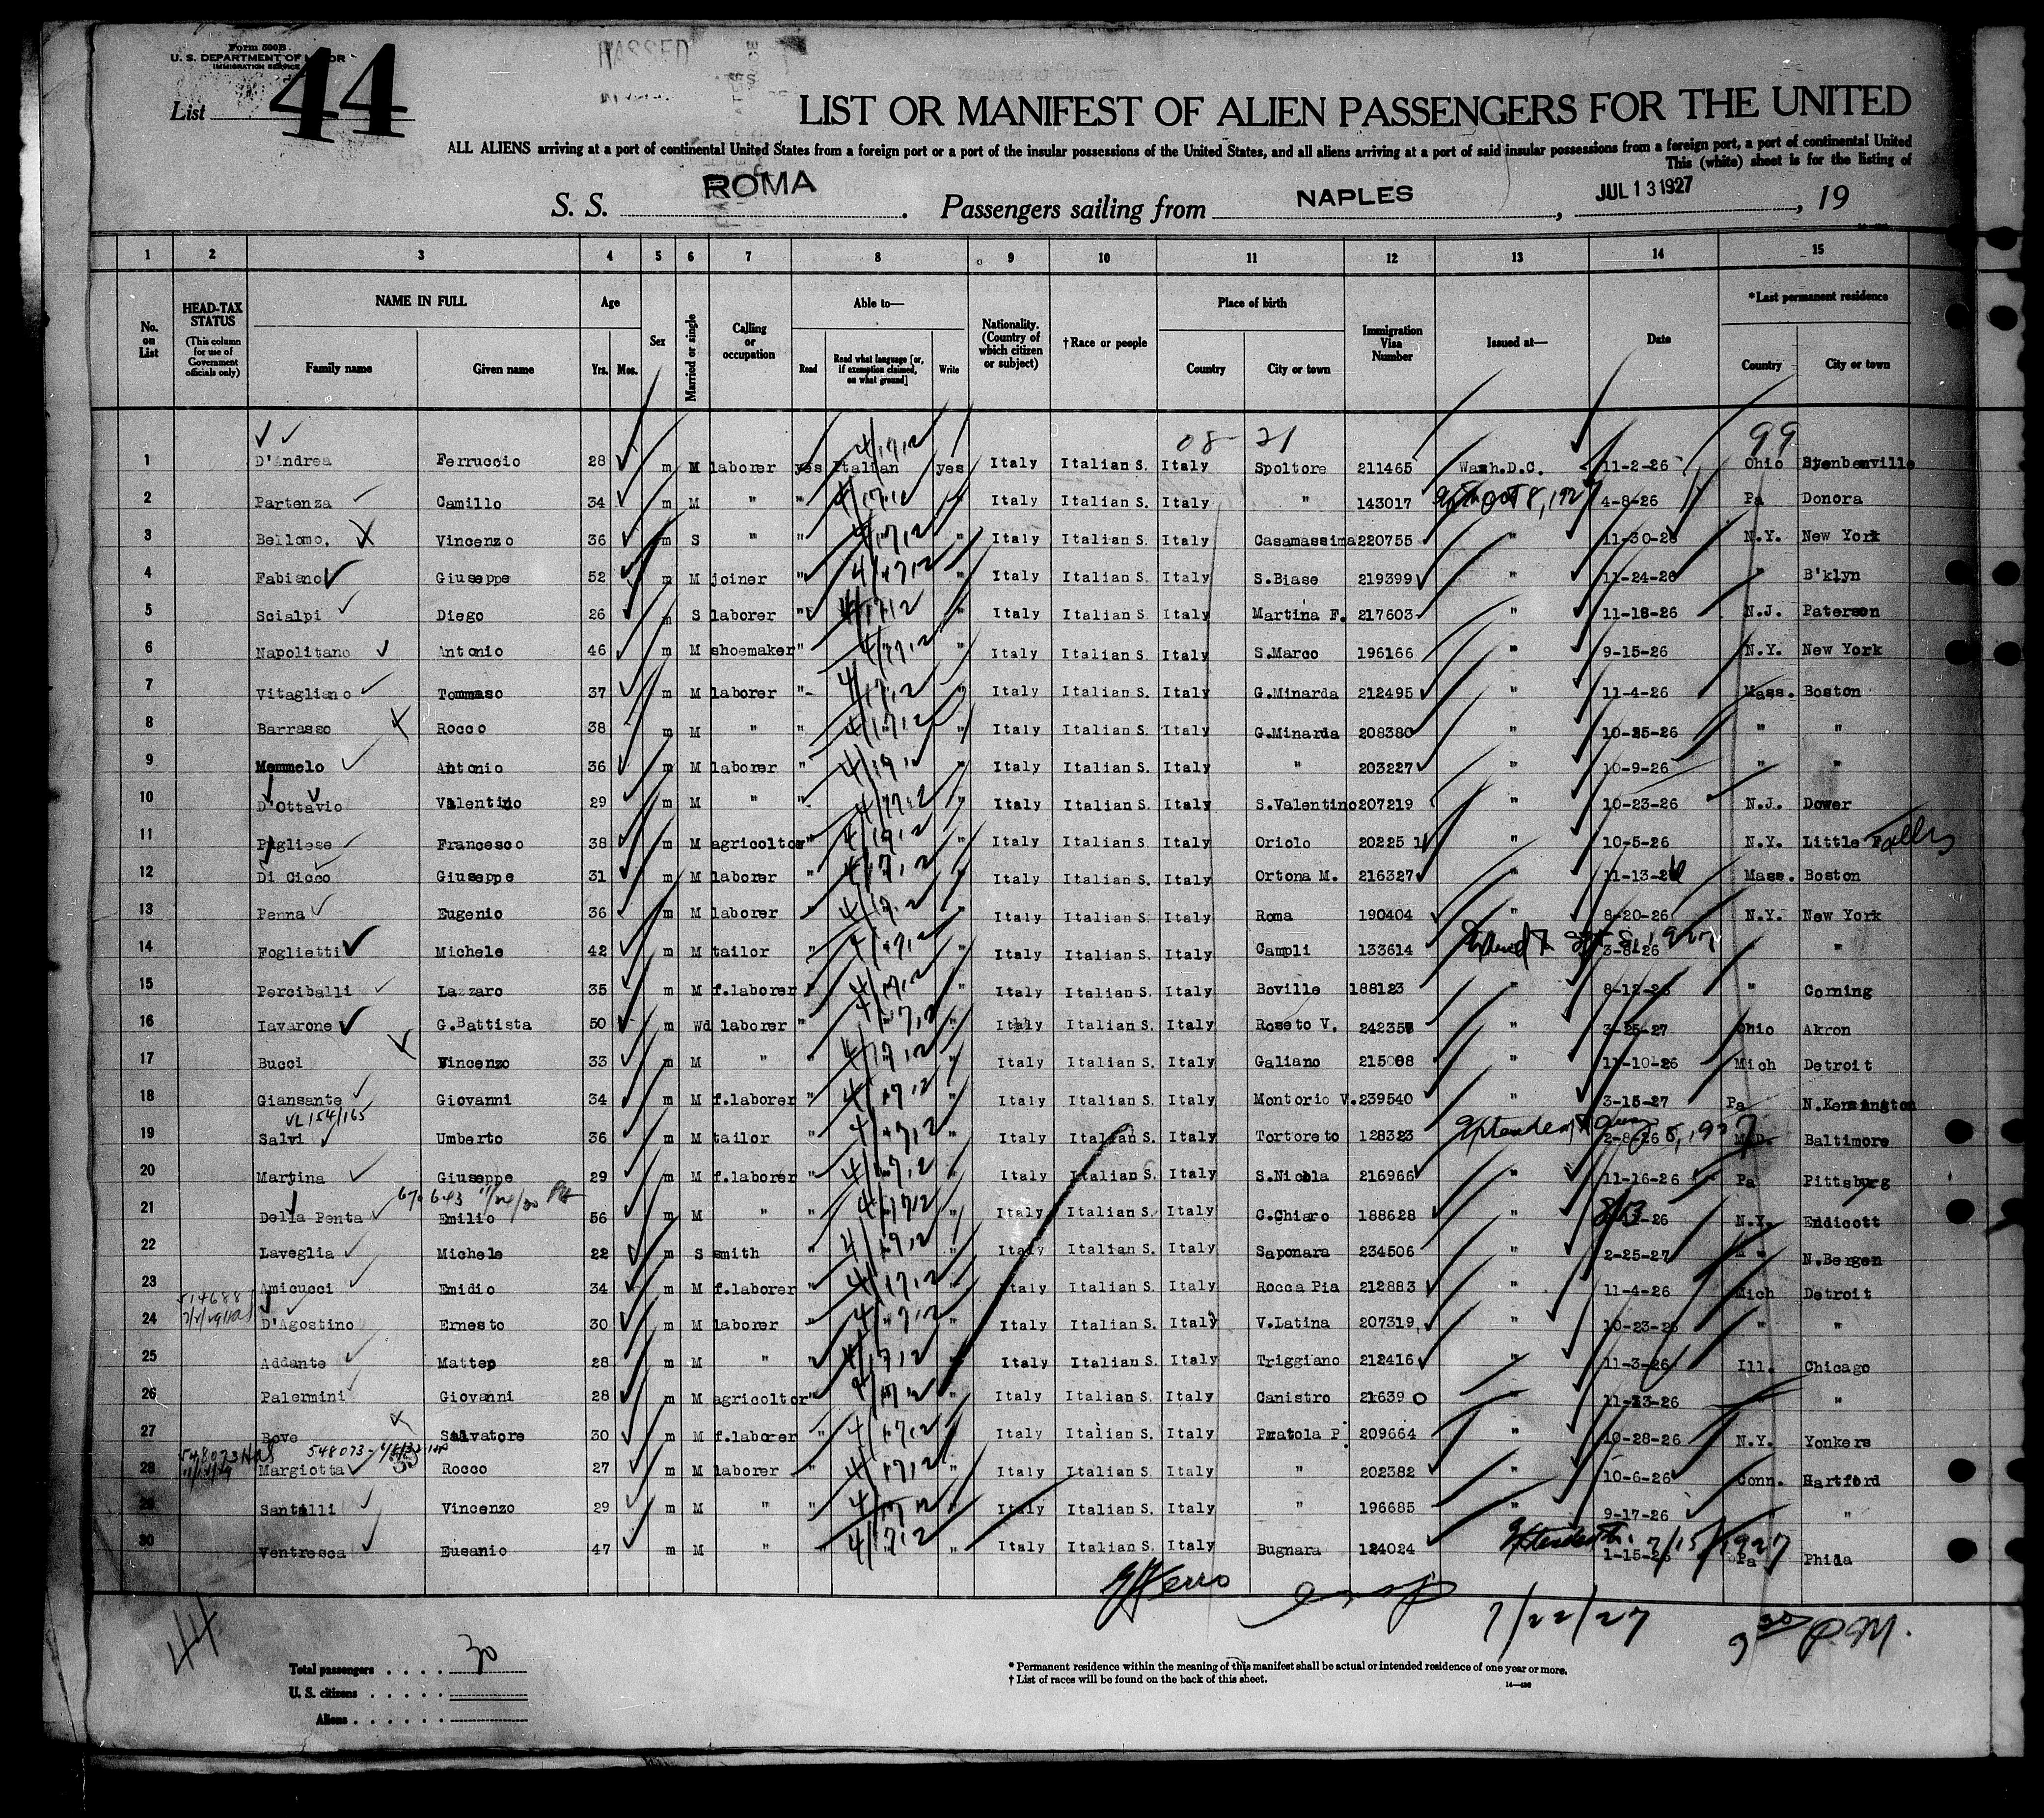 Form 500B
U. S. DEPARTMENT OF LABOR
IMMIGRATION SERVICE
PASSED
List 44
LIST OR MANIFEST OF ALIEN PASSENGERS FOR THE UNITED
ALL ALIENS arriving at a port of continental United States from a foreign port or a port of the insular possessions of the United States, and all aliens arriving at a port of said insular possessions from a foreign port, a port of continental United
This (white) sheet is for the listing of
S. S. ROMA. Passengers sailing from NAPLES, JUL 13 1927, 19
1 2 3 4 5 6 7 8 9 10 11 12 13 14 15
No. on List
HEAD-TAX STATUS (This column for use of Government officials only)
NAME IN FULL
Family name Given name
Age
Yrs. Mos.
Sex
Married or single
Calling or occupation
Able to—
Read Read what language [or, if exemption claimed, on what ground] Write
Nationality. (Country of which citizen or subject)
†Race or people
Place of birth
Country City or town
Immigration Visa Number
Issued at—
Date
*Last permanent residence
Country City or town
08 21 99
1 D'Andrea Ferruccio 28 m M laborer yes Italian 4/17,12 yes Italy Italian S. Italy Spoltore 211465 Wash.D.C. 11-2-26 Ohio Stenbenville
2 Partenza Camillo 34 m M " " 4/17,12 " Italy Italian S. Italy " 143017 Oct 8, 1927 4-8-26 Pa Donora
3 Bellomo. Vincenzo 36 m S " " 4/17,12 " Italy Italian S. Italy Casamassima 220755 " 11-30-26 N.Y. New York
4 Fabiano Giuseppe 52 m M joiner " 4/17,12 " Italy Italian S. Italy S.Biase 219399 " 11-24-26 " B'klyn
5 Scialpi Diego 26 m S laborer " 4/17,12 " Italy Italian S Italy Martina F. 217603 " 11-18-26 N.J. Paterson
6 Napolitano Antonio 46 m M shoemaker " 4/17,12 " Italy Italian S. Italy S.Marco 196166 " 9-15-26 N.Y. New York
7 Vitagliano Tommaso 37 m M laborer " 4/17,12 " Italy Italian S. Italy G.Minarda 212495 " 11-4-26 Mass. Boston
8 Barrasso Rocco 38 m M " " 4/17,12 " Italy Italian S. Italy G.Minarda 208380 " 10-25-26 " "
9 Memmolo Antonio 36 m M laborer " 4/17,12 " Italy Italian S. Italy " 203227 " 10-9-26 " "
10 D'Ottavio Valentino 29 m M " " 4/17,12 " Italy Italian S. Italy S.Valentino 207219 " 10-23-26 N.J. Dower
11 Pugliese Francesco 38 m M agricoltor " 4/17,12 " Italy Italian S. Italy Oriolo 20225 1 " 10-5-26 N.Y. Little Falls
12 Di Cicco Giuseppe 31 m M laborer " 4/17,12 " Italy Italian S. Italy Ortona M. 216327 " 11-13-26 Mass. Boston
13 Penna Eugenio 36 m M laborer " 4/17,12 " Italy Italian S. Italy Roma 190404 " 8-20-26 N.Y. New York
14 Foglietti Michele 42 m M tailor " 4/17,12 " Italy Italian S. Italy Campli 133614 1927 3-8-26 " "
15 Perciballi Lazzaro 35 m M f.laborer " 4/17,12 " Italy Italian S. Italy Boville 188123 " 8-12-26 " Corning
16 Iavarone G.Battista 50 m Wd laborer " 4/17,12 " Italy Italian S. Italy Roseto V. 242358 " 3-25-27 Ohio Akron
17 Bucci Vincenzo 33 m M " " 4/17,12 " Italy Italian S. Italy Galiano 215098 " 11-10-26 Mich Detroit
18 Giansante Giovanni 34 m M f.laborer " 4/17,12 " Italy Italian S. Italy Montorio V. 239540 " 3-15-27 Pa N.Kensington
VL 154/165
19 Salvi Umberto 36 m M tailor " 4/17,12 " Italy Italian S. Italy Tortoreto 128323 Extended 8, 1927 2-8-26 M.D. Baltimore
20 Martina Giuseppe 29 m M f.laborer " 4/17,12 " Italy Italian S. Italy S.Nicola 216966 " 11-16-26 Pa Pittsburg
670643
21 Della Penta Emilio 56 m M " " 4/17,12 " Italy Italian S. Italy C.Chiaro 188628 " 8/13-26 N.Y. Endicott
22 Laveglia Michele 22 m S smith " 4/17,12 " Italy Italian S. Italy Saponara 234506 " 2-25-27 " N.Bergen
23 Amicucci Emidio 34 m M f.laborer " 4/17,12 " Italy Italian S. Italy Rocca Pia 212883 " 11-4-26 Mich Detroit
514688
24 D'Agostino Ernesto 30 m M laborer " 4/17,12 " Italy Italian S. Italy V.Latina 207319 " 10-23-26 " "
25 Addante Matteo 28 m M " " 4/17,12 " Italy Italian S. Italy Triggiano 212416 " 11-3-26 Ill. Chicago
26 Palermini Giovanni 28 m M agricoltor " 4/17,12 " Italy Italian S. Italy Canistro 21639 0 " 11-13-26 " "
27 Bove Salvatore 30 m M f.laborer " 4/17,12 " Italy Italian S. Italy Pratola P. 209664 " 10-28-26 N.Y. Yonkers
548073 548073
28 Margiotta Rocco 27 m M laborer " 4/17,12 " Italy Italian S. Italy " 202382 " 10-6-26 Conn. Hartford
29 Santilli Vincenzo 29 m M " " 4/17,12 " Italy Italian S. Italy " 196685 " 9-17-26 " "
30 Ventresca Eusanio 47 m M " " 4/17,12 " Italy Italian S. Italy Bugnara 124024 Extended 7/15/1927 1-15-26 Pa Phila
7/22/27 3 30 P.M.
44
Total passengers . . . . 30
U. S. citizens . . . . .
Aliens . . . . . .
* Permanent residence within the meaning of this manifest shall be actual or intended residence of one year or more.
† List of races will be found on the back of this sheet.